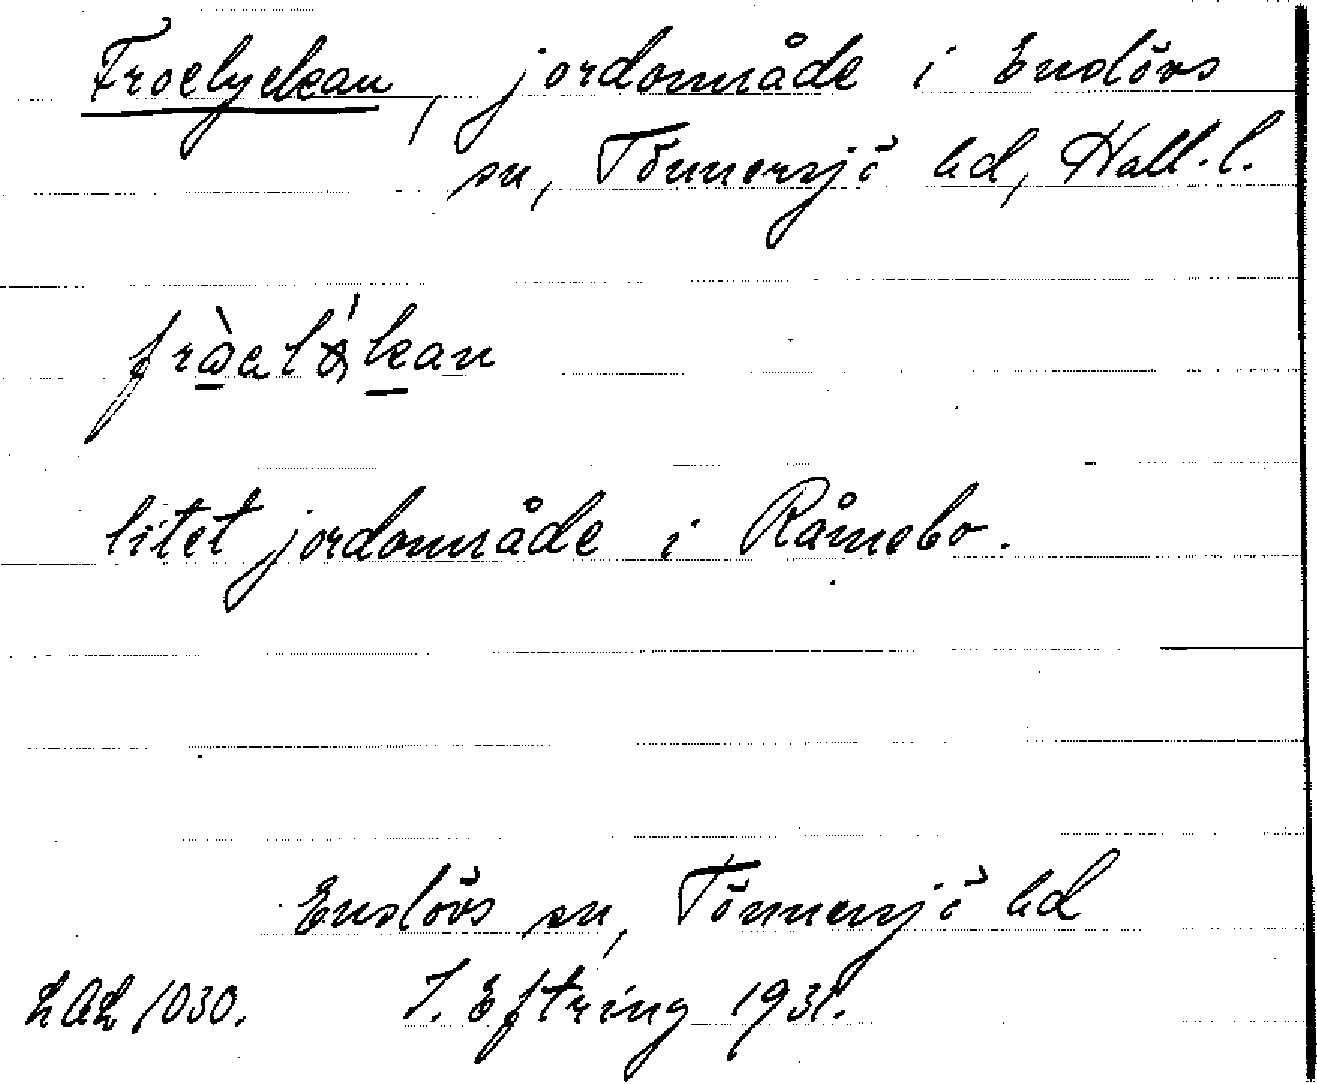 Froelyckan, jordområde i Enslövs
sn, Tönnersjö hd, Hall. l.
litet jordområde i Råmebo.
Enslövs sn, Tönnersjö hd
LAL 1030. I. Eftring 1931.